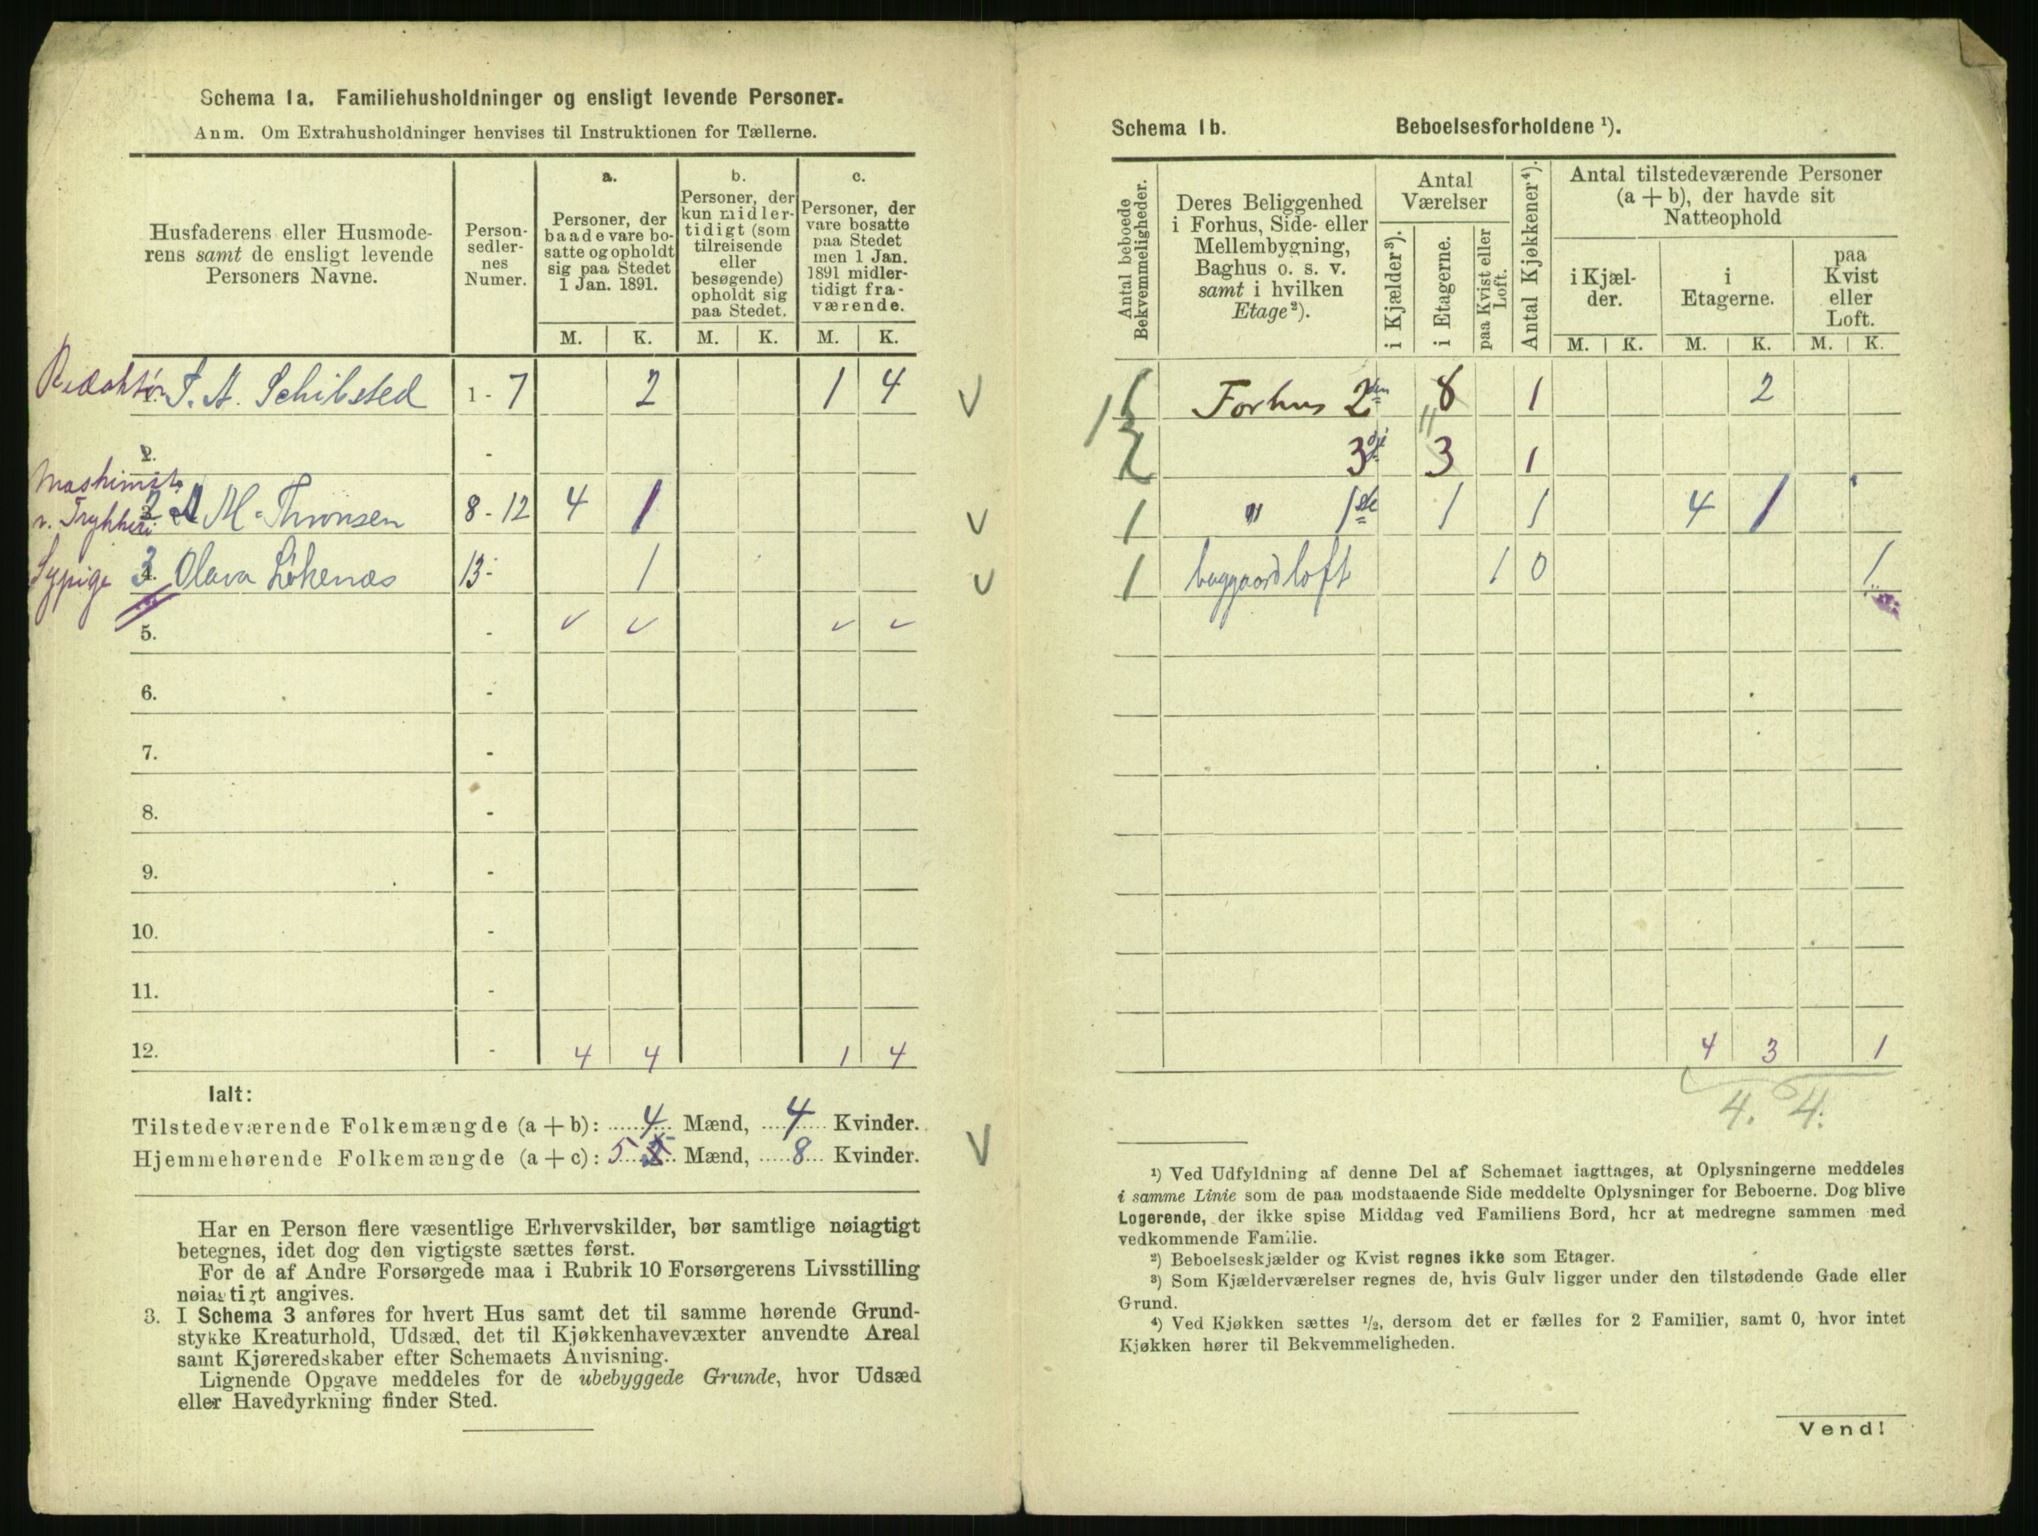 Schema 1a. Familiehusholdninger og ensligt levende Personer.
Anm. Om Extrahusholdninger henvises til Instruktionen for Tællerne.
Husfaderens eller Husmode-
rens samt de ensligt levende
Personers Navne.
Person-
sedler-
nes
Numer.
a.
Personer, der
baade vare bo-
satte og opholdt
sig paa Stedet
1 Jan. 1891.
b.
Personer, der
kun midler-
tidigt (som
tilreisende
eller
besøgende)
opholdt sig
paa Stedet.
c.
Personer, der
vare bosatte
paa Stedet
men 1 Jan.
1891 midler-
tidigt fra-
værende.
M. K. M. K. M. K.
Redaktør 1. T. A. Schibsted 1 - 7 2 1 4
2. -
Maskinist
v. Trykkeri 2 M. Thronsen 8 - 12 4 1
Sypige 3 4. Olava Løkenæs 13 - 1
5. -
6. -
7. -
8. -
9. -
10. -
11. -
12. - 4 4 1 4
Ialt:
Tilstedeværende Folkemængde (a + b): 4 Mænd, 4 Kvinder.
Hjemmehørende Folkemængde (a + c): 5 Mænd, 8 Kvinder.
Har en Person flere væsentlige Erhvervskilder, bør samtlige nøiagtigt
betegnes, idet dog den vigtigste sættes først.
For de af Andre Forsørgede maa i Rubrik 10 Forsørgerens Livsstilling
nøiagtigt angives.
3. I Schema 3 anføres for hvert Hus samt det til samme hørende Grund-
stykke Kreaturhold, Udsæd, det til Kjøkkenhavevæxter anvendte Areal
samt Kjøreredskaber efter Schemaets Anvisning.
Lignende Opgave meddeles for de ubebyggede Grunde, hvor Udsæd
eller Havedyrkning finder Sted.
Schema 1b. Beboelsesforholdene ¹).
Antal beboede
Bekvemmeligheder.
Deres Beliggenhed
i Forhus, Side- eller
Mellembygning,
Baghus o. s. v.
samt i hvilken
Etage²).
Antal
Værelser
i Kjælder³).
i Etagerne.
paa Kvist eller
Loft.
Antal Kjøkkener⁴).
Antal tilstedeværende Personer
(a + b), der havde sit
Natteophold
i Kjæl-
der.
i
Etagerne.
paa
Kvist
eller
Loft.
M. K. M. K. M. K.
1 Forhus 2den 8 1 2
3dje 3 1
1 " 1ste 1 1 4 1
1 baggaard loft 1 0 1
4 3 1
4. 4.
¹) Ved Udfyldning af denne Del af Schemaet iagttages, at Oplysningerne meddeles
i samme Linie som de paa modstaaende Side meddelte Oplysninger for Beboerne. Dog blive
Logerende, der ikke spise Middag ved Familiens Bord, her at medregne sammen med
vedkommende Familie.
²) Beboelseskjælder og Kvist regnes ikke som Etager.
³) Som Kjælderværelser regnes de, hvis Gulv ligger under den tilstødende Gade eller
Grund.
⁴) Ved Kjøkken sættes ¹/₂, dersom det er fælles for 2 Familier, samt 0, hvor intet
Kjøkken hører til Bekvemmeligheden.
Vend!